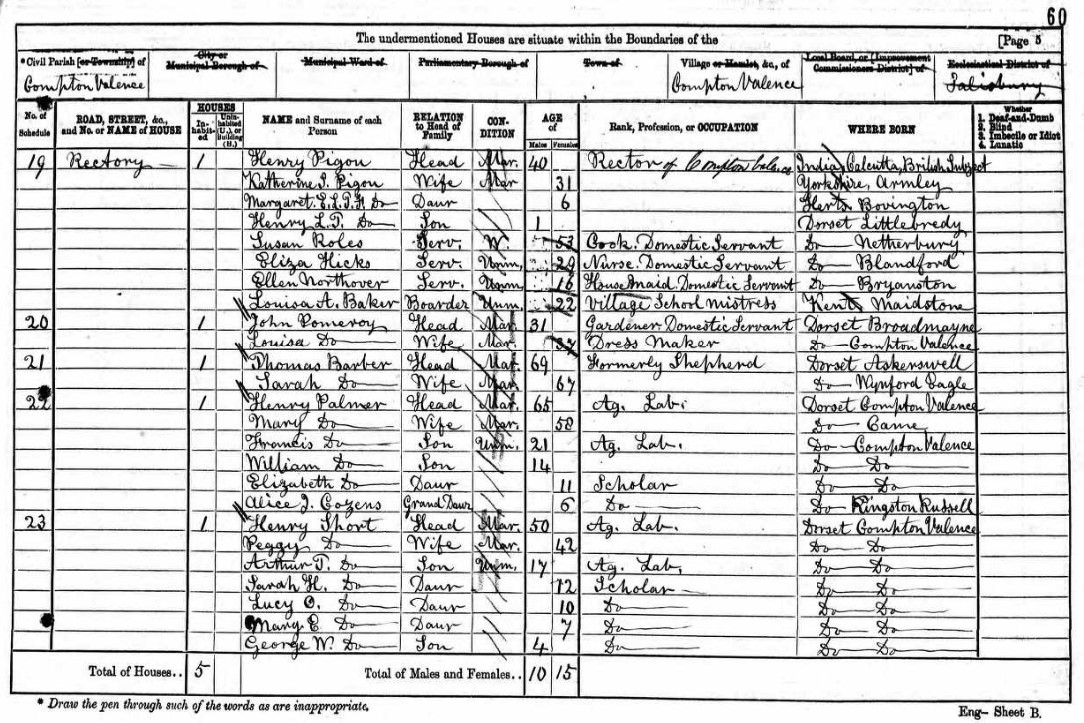 60
The undermentioned Houses are situate within the Boundaries of the [Page 5
* Civil Parish [or Township] of City or Municipal Borough of Municipal Ward of Parliamentary Borough of Town of Village or Hamlet, &c., of Local Board, or [Improvement Commissioners District] of Ecclesiastical District of
Compton Valence Compton Valence Salisbury
No. of Schedule ROAD, STREET, &c., and No. or NAME of HOUSE HOUSES Inhabited Uninhabited (U.), or Building (B.) NAME and Surname of each Person RELATION to Head of Family CONDITION AGE of Males Females Rank, Profession, or OCCUPATION WHERE BORN Whether 1. Deaf-and-Dumb 2. Blind 3. Imbecile or Idiot 4. Lunatic
19 Rectory 1 Henry Pigou Head Mar. 40 Rector of Compton Valence India, Calcutta, British Subject
Katherine I. Pigou Wife Mar 31 Yorkshire, Armley
Margaret. E.L.P.H. Do Daur 6 Herts Bovington
Henry L.P. Do Son 1 Dorset Littlebredy
Susan Roles Serv. W. 53 Cook. Domestic Servant Do Netherbury
Eliza Hicks Serv. Unm. 29 Nurse. Domestic Servant Do Blandford
Ellen Northover Serv. Unm. 16 House Maid Domestic Servant Do Bryanston
Louisa A. Baker Boarder Unm. 22 Village School Mistress Kent Maidstone
20 1 John Pomeroy Head Mar. 31 Gardener Domestic Servant Dorset Broadmayne
Louisa Do Wife Mar. Dress Maker Do Compton Valence
21 1 Thomas Barber Head Mar. 69 Formerly Shepherd Dorset Askerswell
Sarah Do Wife Mar. 67 Do Wynford Eagle
22 1 Henry Palmer Head Mar. 65 Ag. Lab. Dorset Compton Valence
Mary Do Wife Mar. 58 Do Came
Francis Do Son Unm. 21 Ag. Lab. Do Compton Valence
William Do Son 14 Do Do
Elizabeth Do Daur 11 Scholar Do Do
Alice J. Cozens Grand Daur 6 Do Do Kingston Russell
23 1 Henry Short Head Mar. 50 Ag. Lab. Dorset Compton Valence
Peggy Do Wife Mar. 42 Do Do
Arthur T. Do Son Unm. 17 Ag. Lab. Do Do
Sarah H. Do Daur 12 Scholar Do Do
Lucy O. Do Daur 10 Do Do Do
Mary E Do Daur 7 Do Do Do
George W. Do Son 4 Do Do Do
Total of Houses.. 5 Total of Males and Females.. 10 15
* Draw the pen through such of the words as are inappropriate.
Eng- Sheet B.